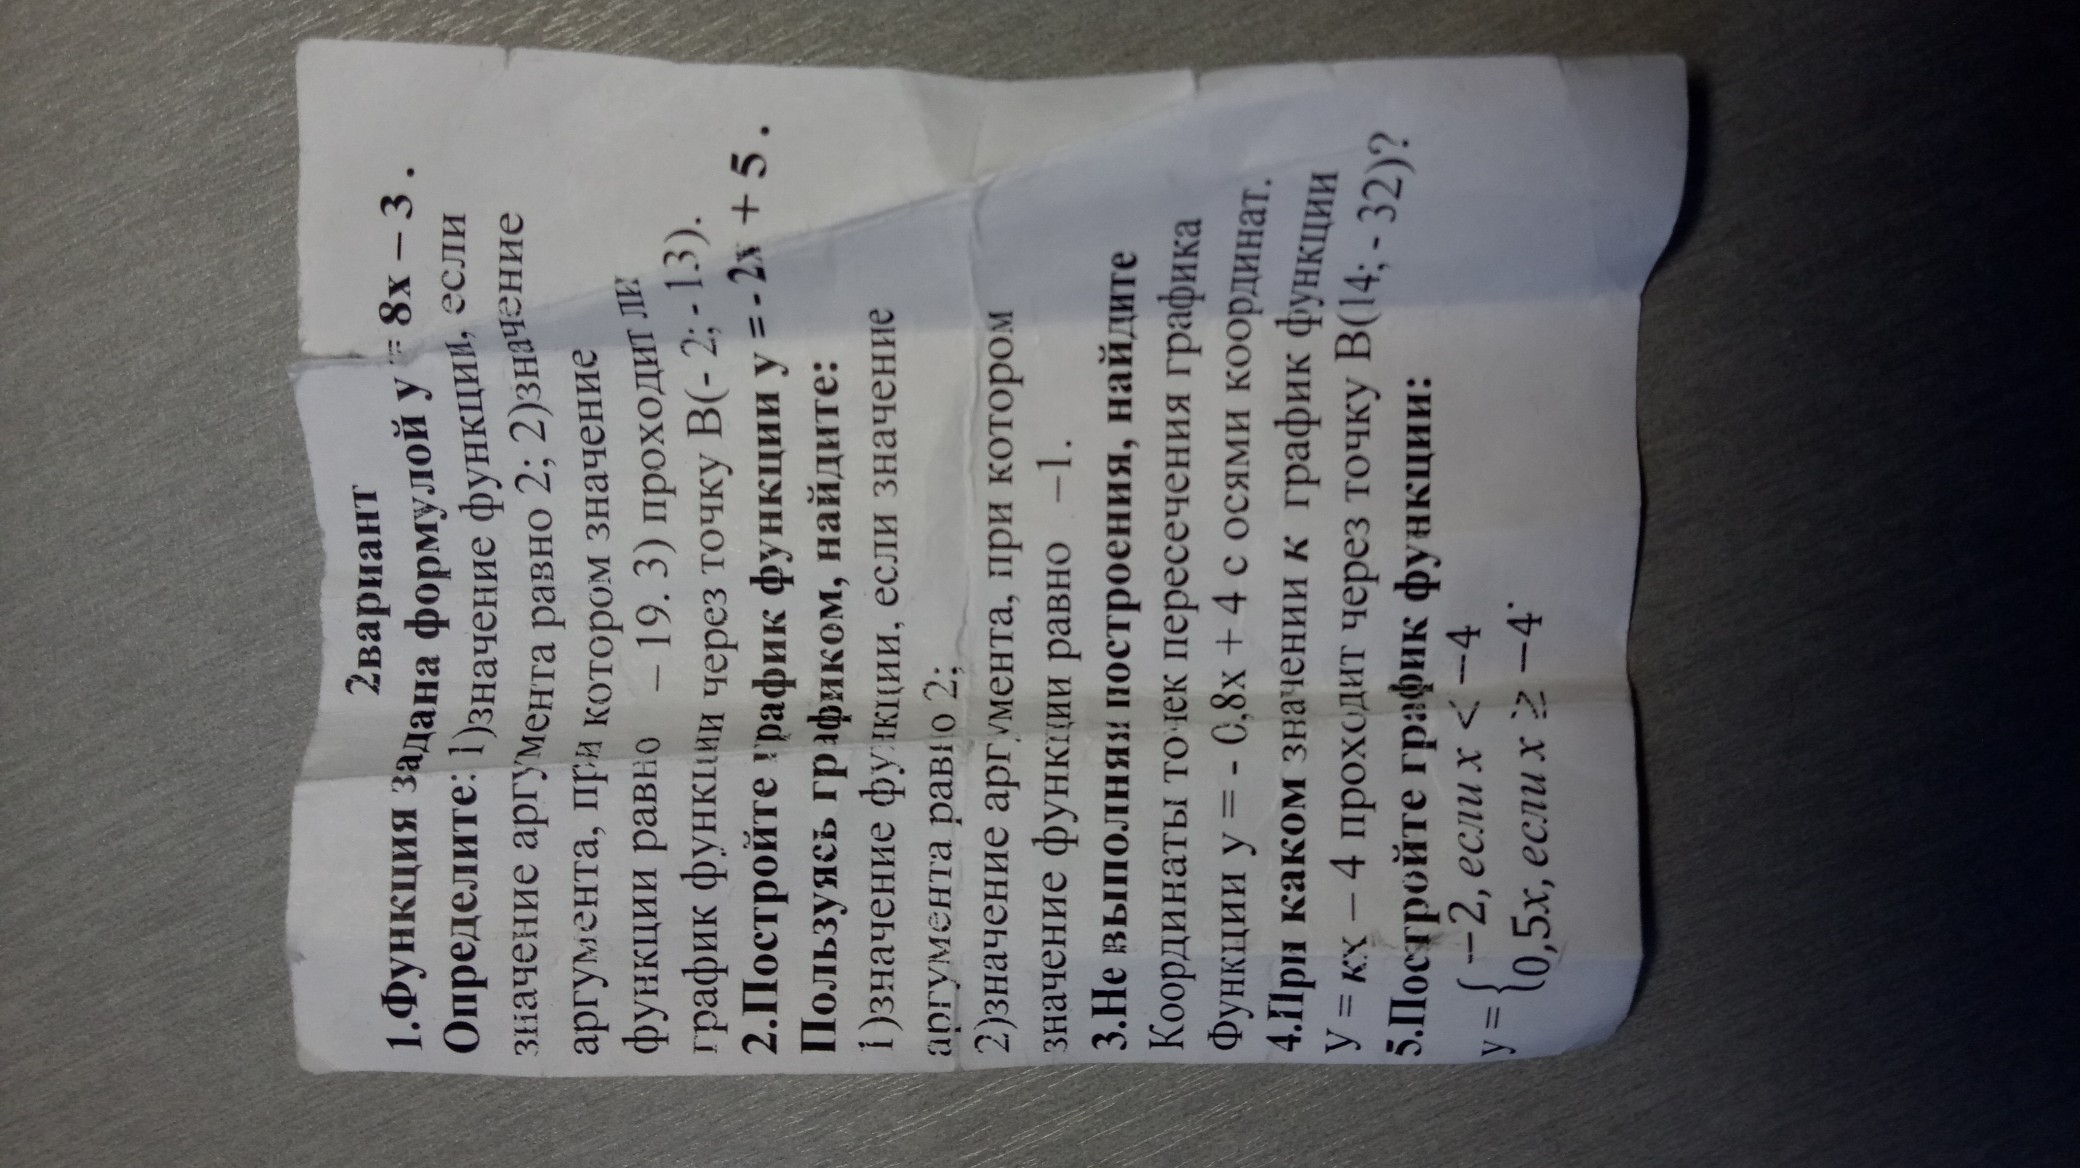 2вариант
1.Функция задана формулой у = 8х – 3 .
Определите: 1)значение функции, если
значение аргумента равно 2; 2)значение
аргумента, при котором значение
функции равно – 19. 3) проходит ли
график функции через точку В(- 2; -13).
2.Постройте график функции у = - 2х + 5 .
Пользуясь графиком, найдите:
1)значение функции, если значение
аргумента равно 2;
2)значение аргумента, при котором
значение функции равно –1.
3.Не выполняя построения, найдите
Координаты точек пересечения графика
Функции у = - 0,8х + 4 с осями координат.
4.При каком значении к график функции
У = кх – 4 проходит через точку В(14; - 32)?
5.Постройте график функции:
y = { −2, если x < −4
0,5x, если x ≥ −4.